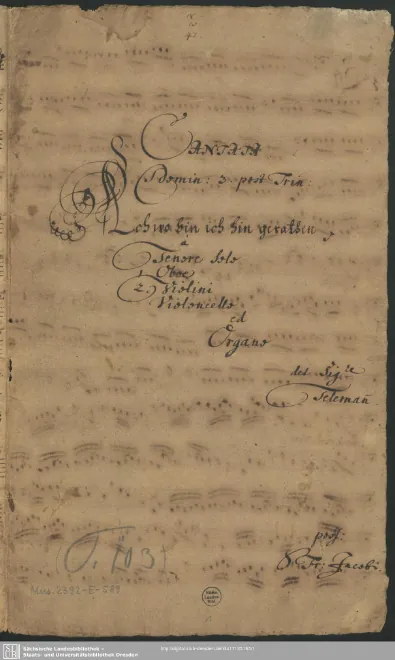 CANTATA
Domin: 3. post Trin:
Ach wo bin ich hin gerathen
a
Tenore Solo
1 Oboe
2 Violini
Violoncello
ed
Organo
del Sigre
Teleman̄
poss:
Jacobi
(T. 103)
Mus. 2392-E-589
Sächsische Landesbibliothek –
Staats- und Universitätsbibliothek Dresden